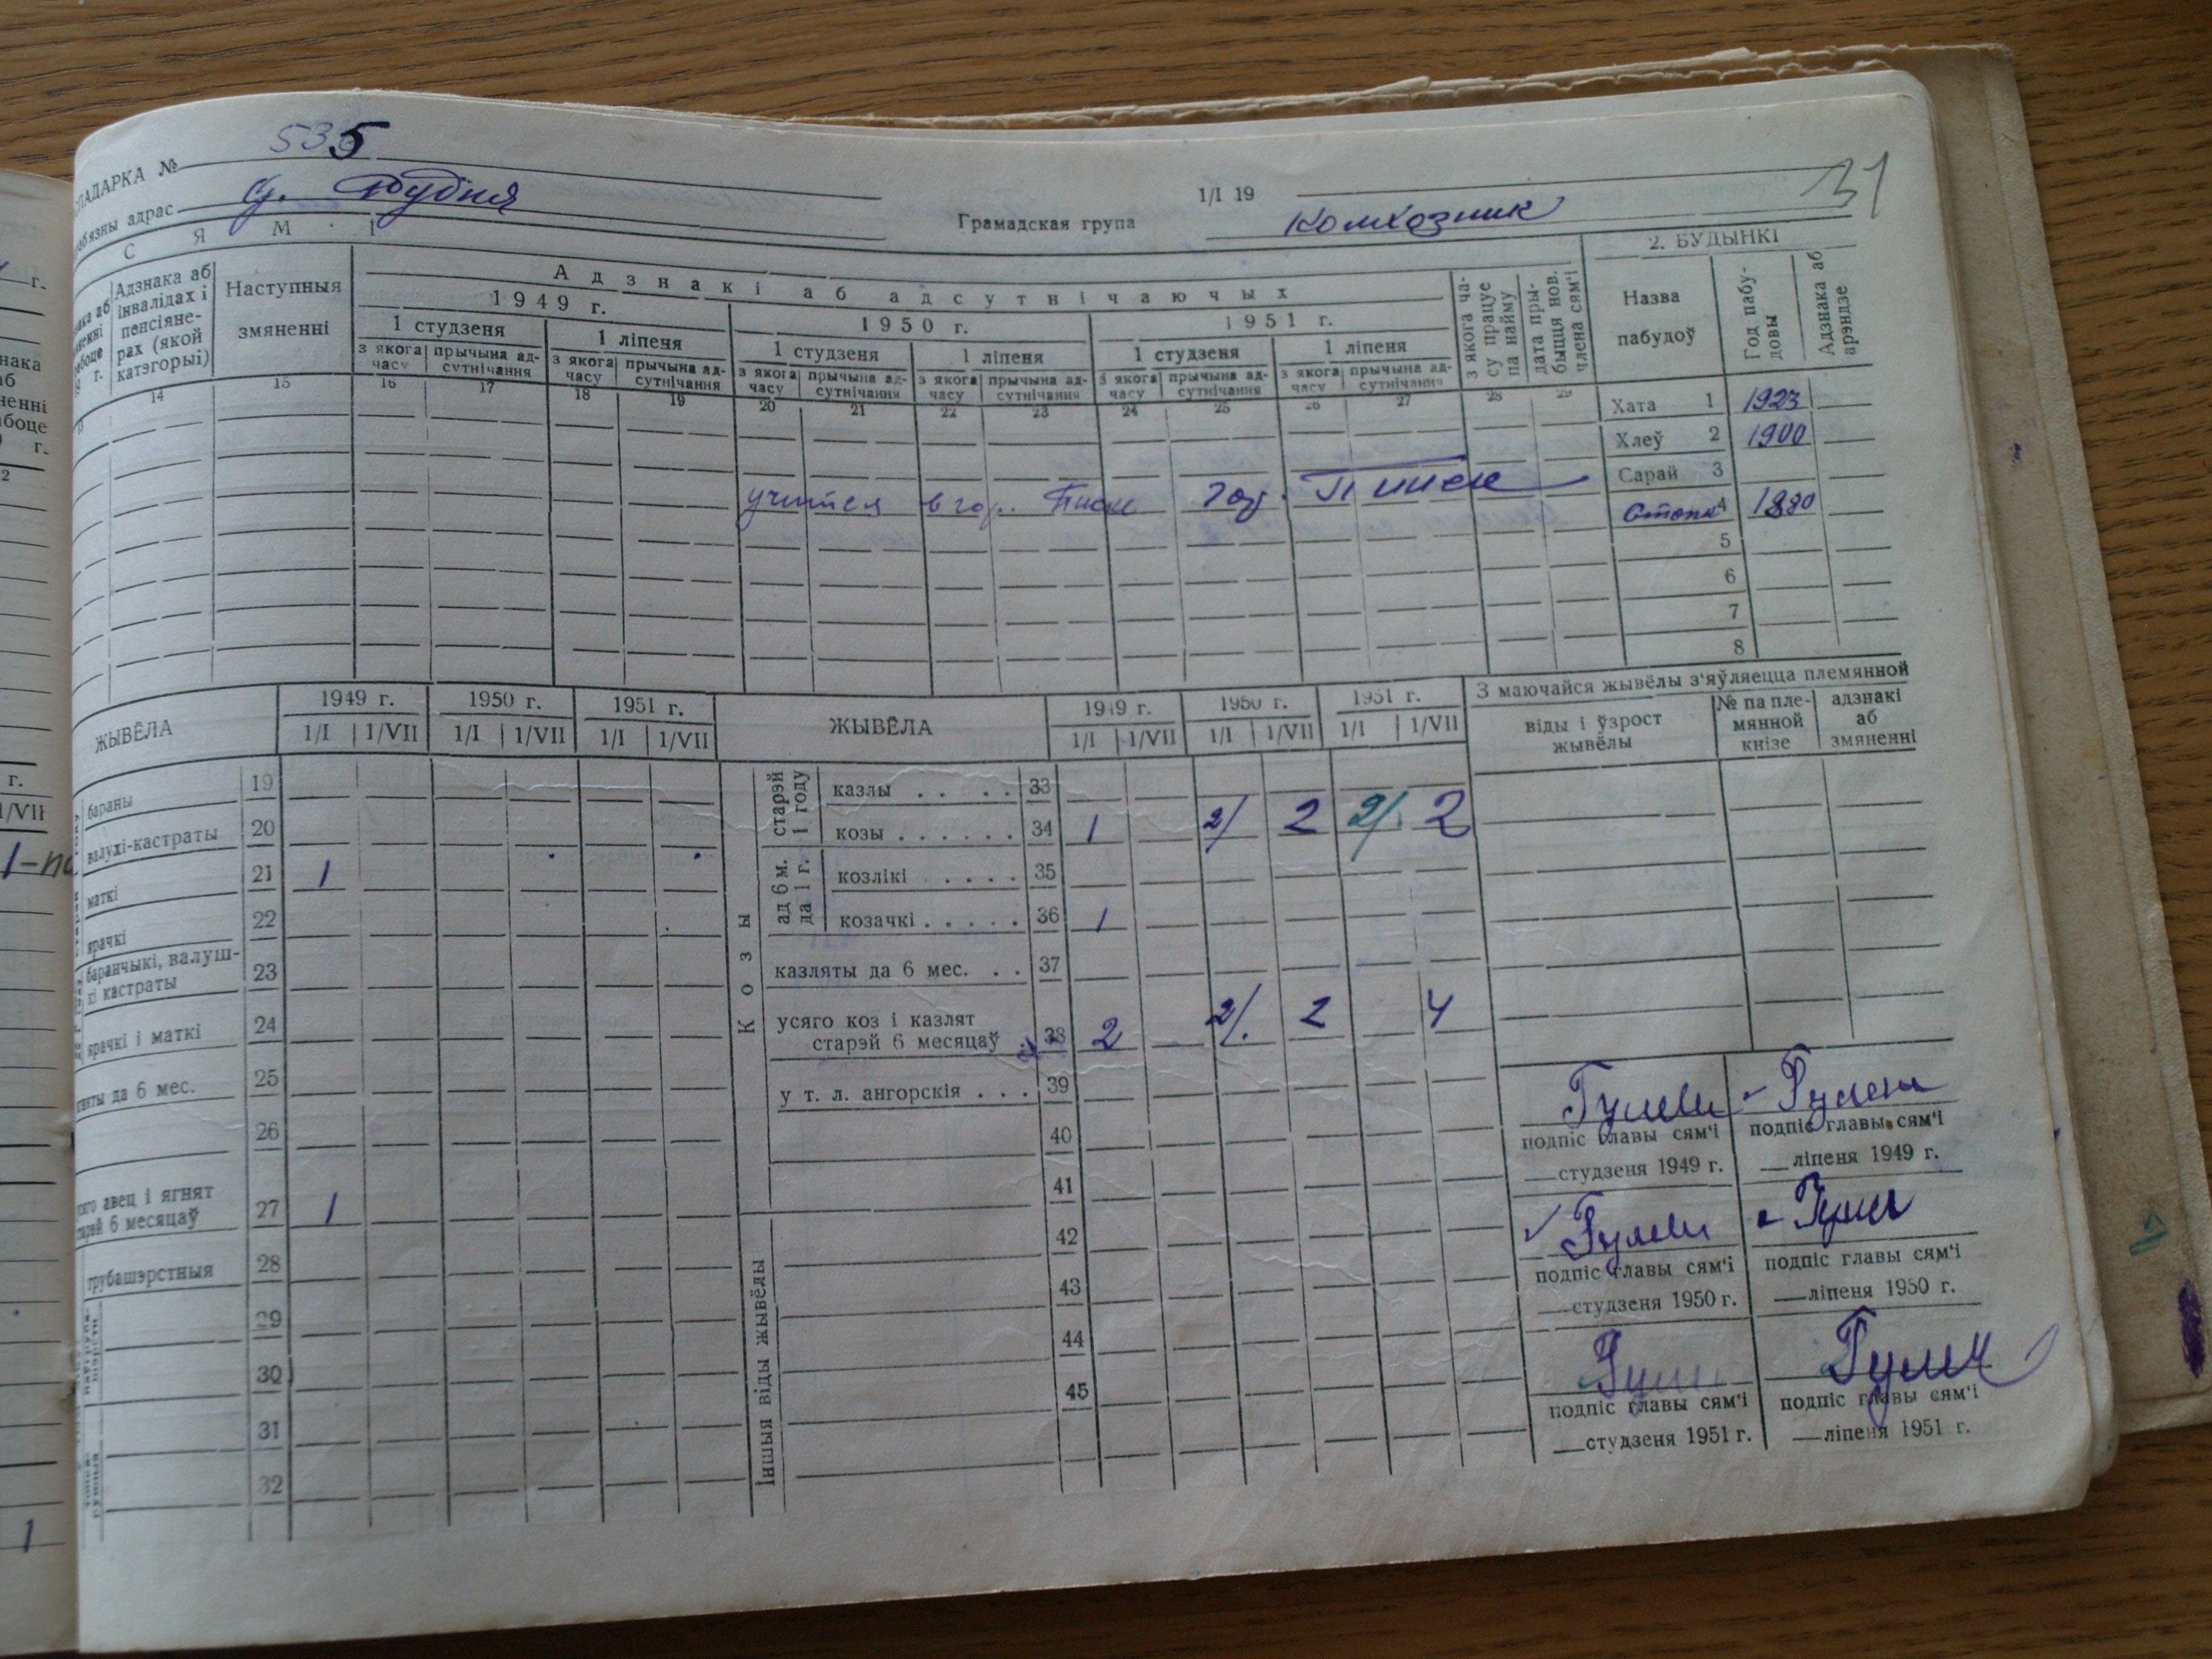 535
31
ПАДАРКА №
1/I 19
адрас д. Рубня
Грамадская група колхозник
С Я М ' І
2. БУДЫНКІ
Адзнака аб інвалідах і пенсіянерах (якой катэгорыі)
Наступныя змяненні
Адзнакі аб адсутнічаючых
1949 г.
1950 г.
1951 г.
1 студзеня
1 ліпеня
1 студзеня
1 ліпеня
1 студзеня
1 ліпеня
з якога часу
прычына адсутнічання
з якога часу
прычына адсутнічання
з якога часу
прычына адсутнічання
з якога часу
прычына адсутнічання
з якога часу
прычына адсутнічання
з якога часу
прычына адсутнічання
з якога часу працуе па найму
дата прыбыцця нов. члена сям'і
Назва пабудоў
Год пабудовы
Адзнака аб арэндзе
13 14 15 16 17 18 19 20 21 22 23 24 25 26 27 28 29
Хата 1 1923
Хлеў 2 1900
Сарай 3
учится в гор. Пинск
4
5
6
7
8
ЖЫВЁЛА
1949 г.
1950 г.
1951 г.
1/I 1/VII 1/I 1/VII 1/I 1/VII
ЖЫВЁЛА
1949 г.
1950 г.
1951 г.
1/I 1/VII 1/I 1/VII 1/I 1/VII
З маючайся жывёлы з'яўляецца племянной
віды і ўзрост жывёлы
№ па племянной кнізе
адзнакі аб змяненні
бараны 19
валухі-кастраты 20
маткі 21 1
ярачкі 22
баранчыкі, валушкі кастраты 23
ярачкі і маткі 24
да 6 мес. 25
26
авец і ягнят старэй 6 месяцаў 27 1
грубашэрстныя 28
29
30
31
32
Козы
старэй 1 году
казлы 33
козы 34 1 2 2 2 2
ад 6 м. да 1 г.
козлікі 35
козачкі 36 1
казляты да 6 мес. 37
усяго коз і казлят старэй 6 месяцаў 38 2 2 2 4
у т. л. ангорскія 39
40
41
Іншыя віды жывёлы
42
43
44
45
подпіс главы сям'і
студзеня 1949 г.
подпіс главы сям'і
ліпеня 1949 г.
подпіс главы сям'і
студзеня 1950 г.
подпіс главы сям'і
ліпеня 1950 г.
подпіс главы сям'і
студзеня 1951 г.
подпіс главы сям'і
ліпеня 1951 г.